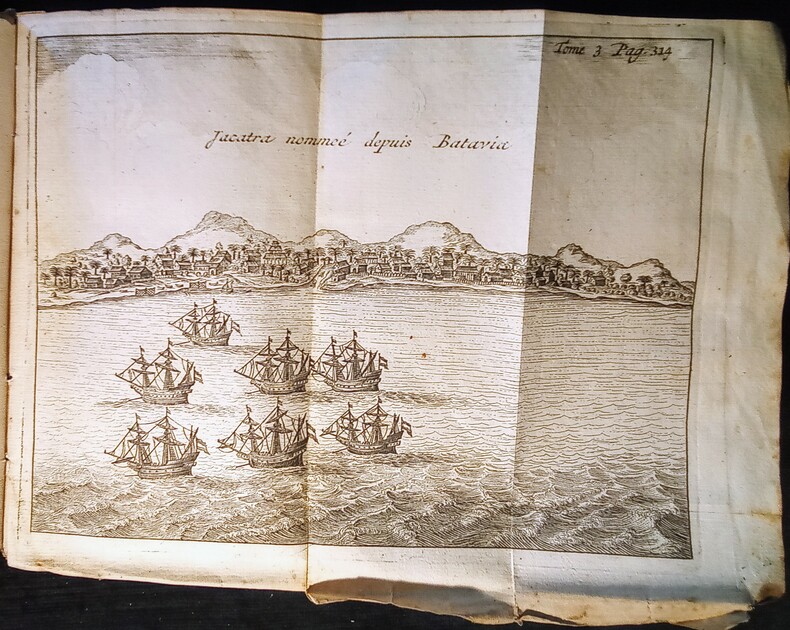 Tome 3 Pag. 314
Jacatra nommeé depuis Batavia